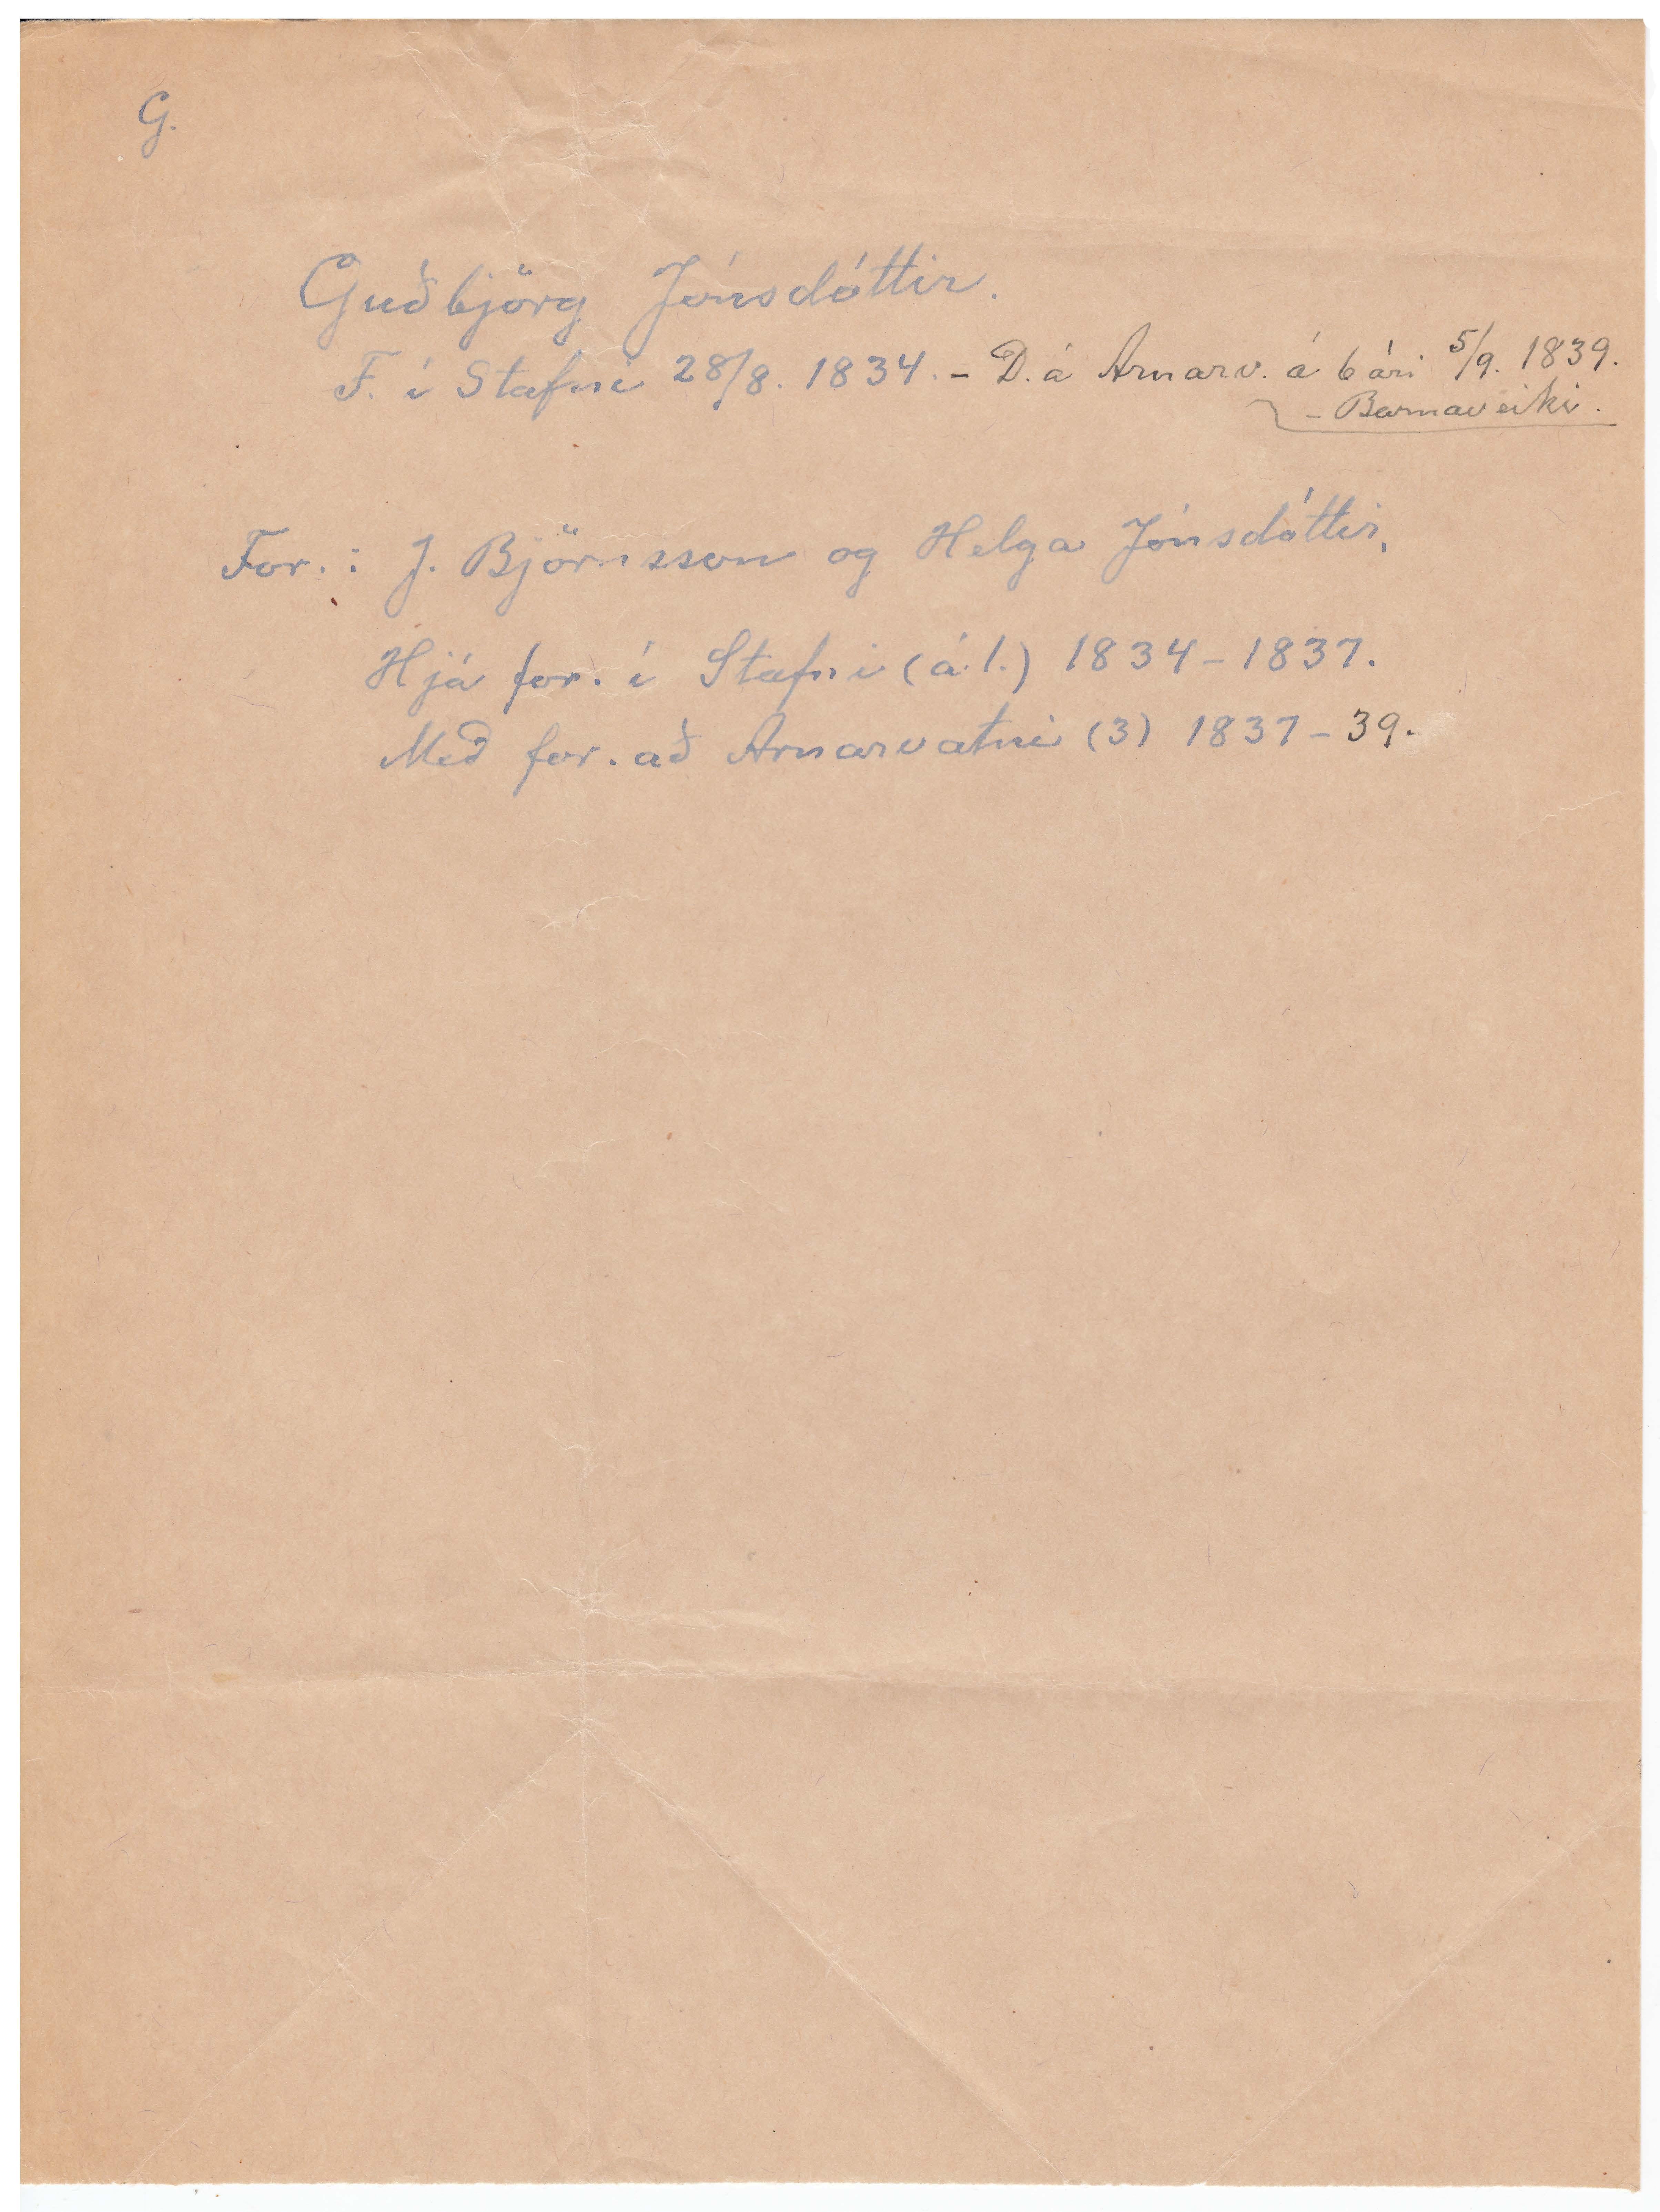 G.
Guðbjörg Jónsdóttir.
F. í Stafni 28/8. 1834. - D. á Arnarv. á 6 ári 5/9. 1839.
- Barnaveiki.
For. : J. Björnsson og Helga Jónsdóttir.
Hjá for. í Stafni (á 1.) 1834 - 1837.
Með for. að Arnarvatni (3) 1837 - 39.